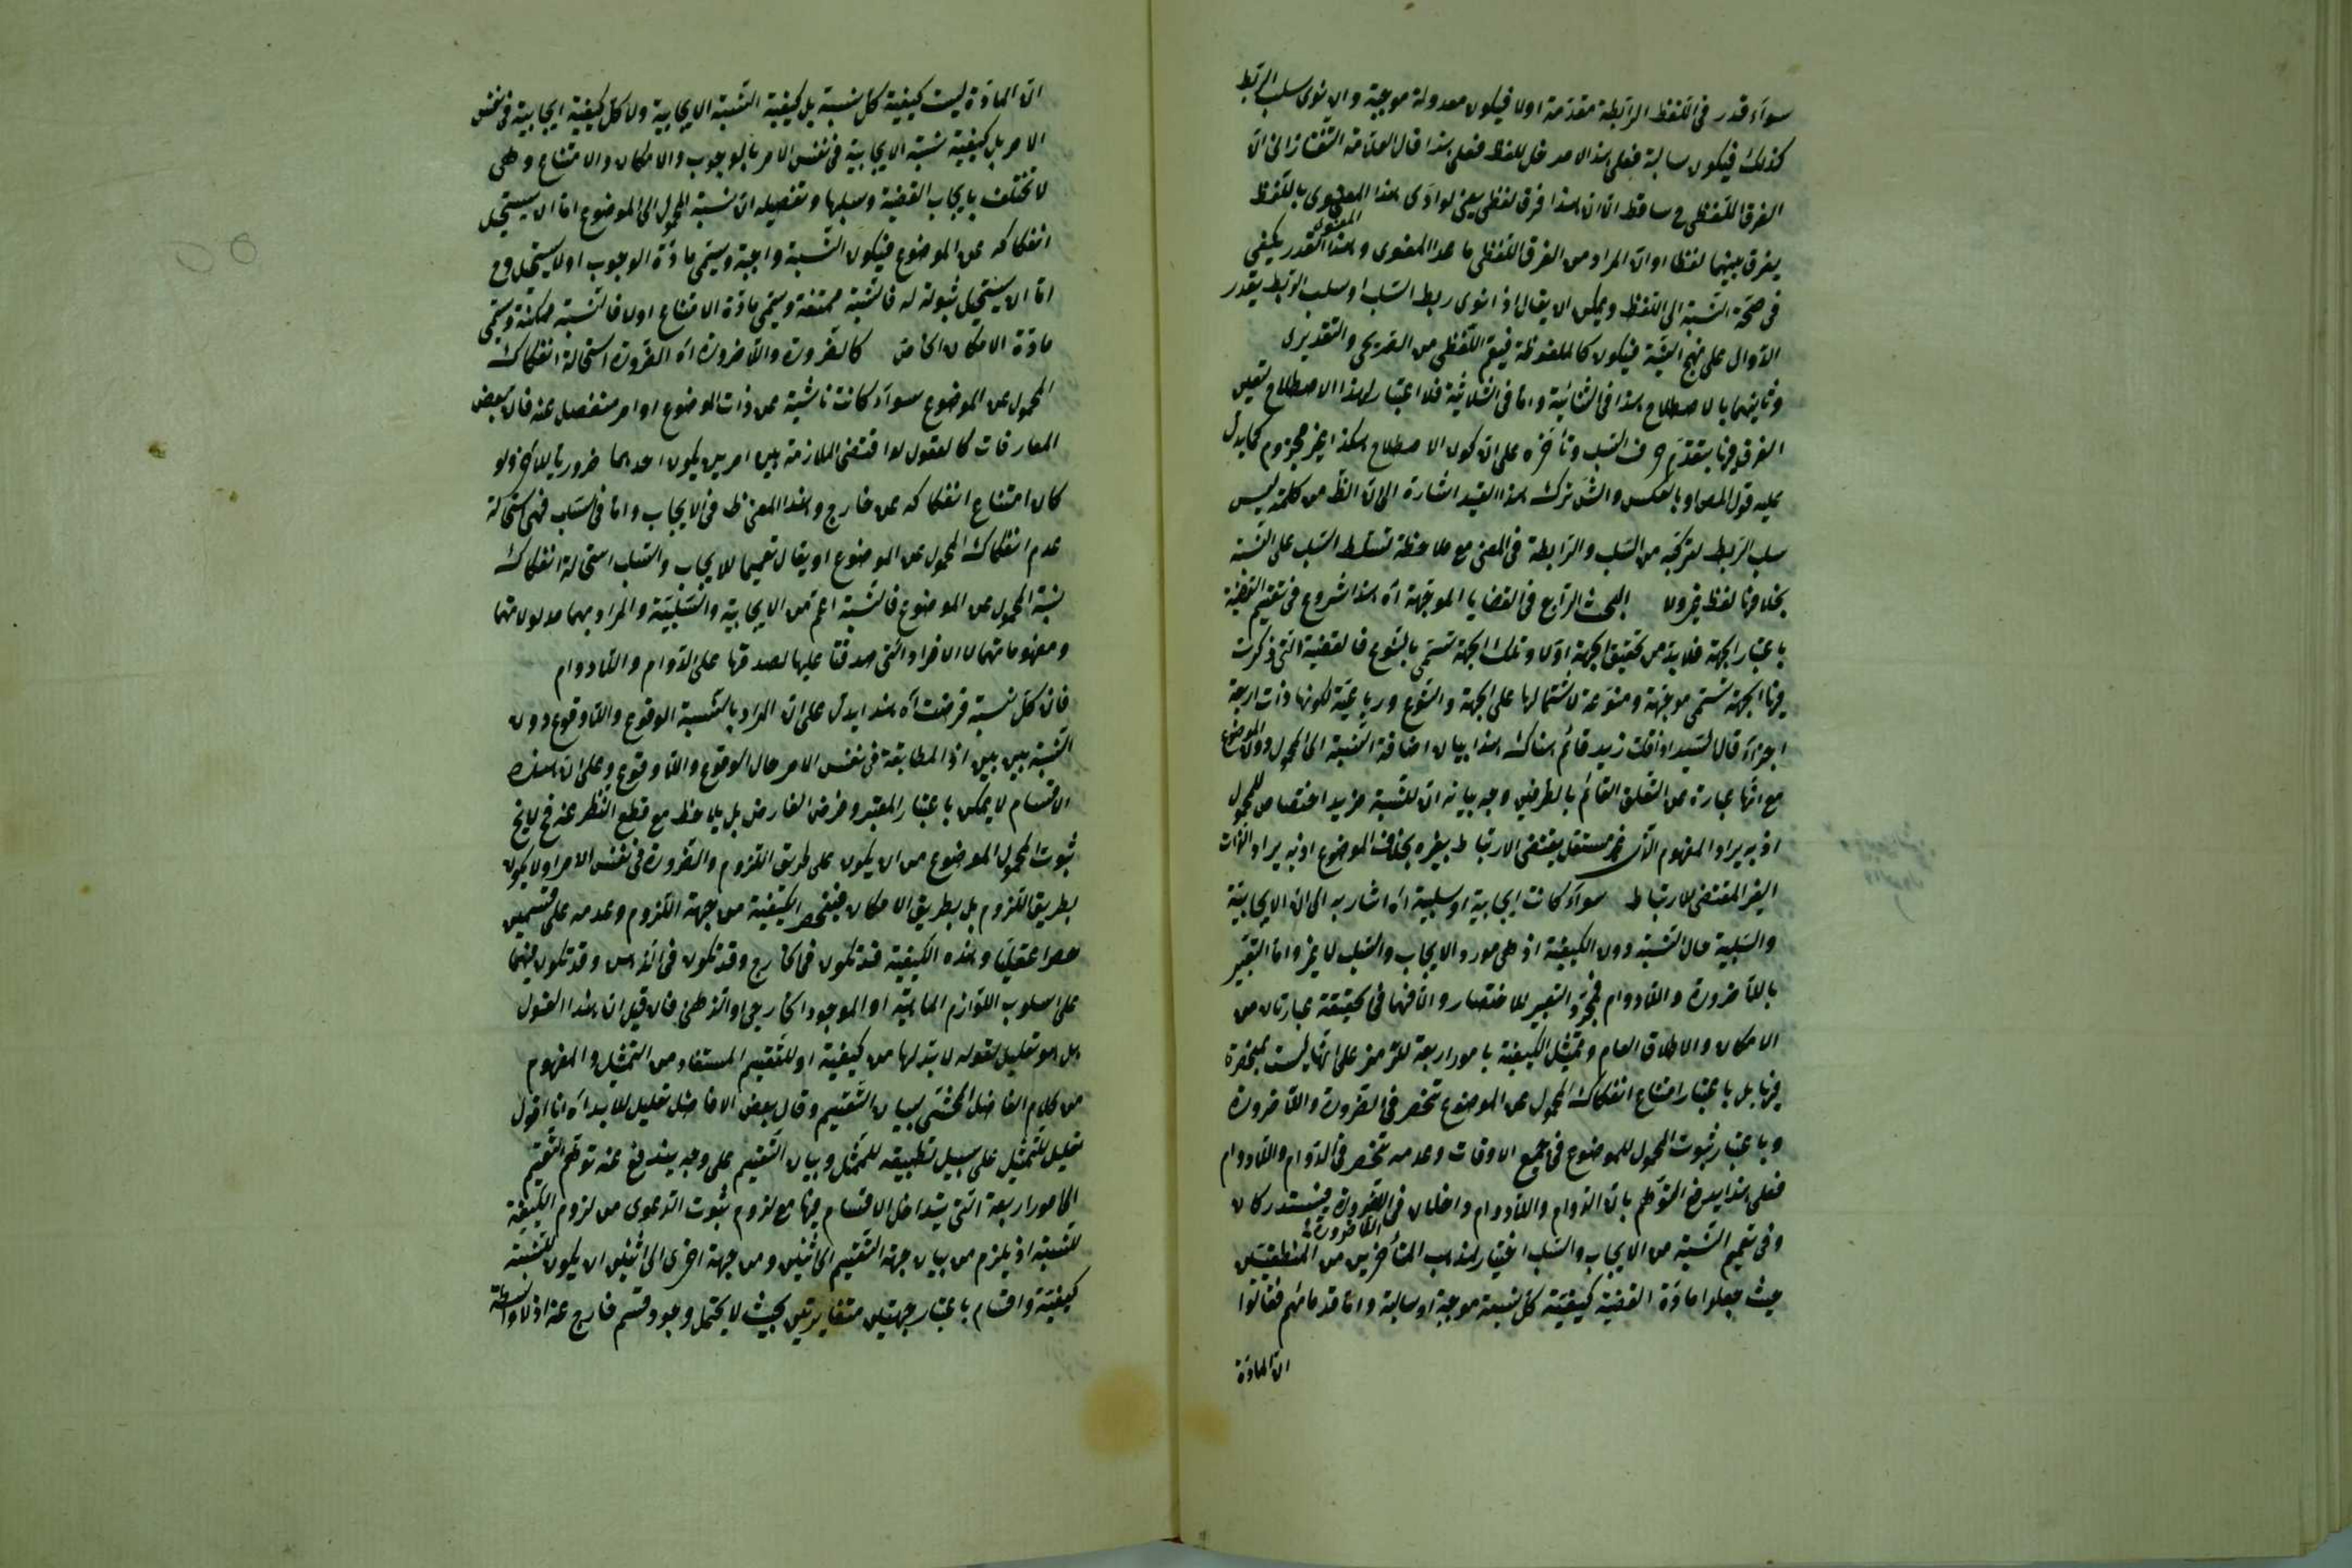 سوآء قدر فى اللفظ الرابطة مقدمة اولا فيكون معدولة موجبة وان نوى سلب الربط
كذلك فيكون سالبة فعلى هذا لا مدخل للفظ فعلى هذا قال العلامة التفتازانى ان
الفرق اللفظى ح ساقط اذ ان هذا فرق لفظى يعنى لو ادى هذا المعنوى باللفظ
يفرق بينهما لفظا او ان المراد من الفرق اللفظى ما عدا المعنوى وهذا القدر يكفى
فى صحة النسبة الى اللفظ ويمكن ان يقال اذا نوى ربط السلب او سلب الربط يقدر
الدوال على نهج النية فيكون كالملفوظة فيعم اللفظى من الصريحى والتقديرى
وثانيهما بالاصطلاح هذا فى الثنائية واما فى الثلاثية فلا اعتبار لهذا الاصطلاح لتعين
الفرق فيها بتقدم حرف السلب وتأخره على ان كون الاصطلاح هكذا غير مجزوم كما يدل
عليه قول المص او بالعكس والش ترك هذا القيد اشارة الى ان الظ من كلمة ليس
سلب الربط لتركبه من السلب والرابطة فى المعنى مع ملاحظة تسلط السلب على النسبة
بخلافها لفظ غير ولا البحث الرابع فى القضايا الموجهة اه هذا شروع فى تقسيم القضية
باعتبار الجهة فلا بد من تحقيق الجهة اولا وتلك الجهة تسمى بالنوع فالقضية التى ذكرت
فيها الجهة تسمى موجهة ومنوعة لاشتمالها على الجهة والنوع ورباعية لكونها ذات اربعة
اجزاء قال السيد اذا قلت زيد قائم هناك هذا بيان اضافة النسبة الى المحمول دون الموضوع
مع انها عبارة عن التعلق القائم بالطرفين وجه بيانه ان للنسبة مزيد اختصاص للمحمول
اذ به يراد المفهوم الذى غير مستقل يقتضى الارتباط بغيره بخلاف الموضوع اذ به يراد الذات
الغير المقتضى للارتباط سوآء كانت ايجابية او سلبية اه اشار به الى ان الايجابية
والسلبية حال النسبة دون الكيفية اذ هى مورد الايجاب والسلب لا غير واما التعبير
باللاضرورة واللادوام فمجرد التعبير للاختصار والا فهما فى الحقيقة عبارتان من
الامكان والاطلاق العام وتمثيل الكيفية بامور اربعة للرمز على انها ليست بمنحصرة
فيها بل باعتبار امتناع انفكاك المحمول عن الموضوع تنحصر فى الضرورة واللاضرورة
وباعتبار ثبوت المحمول للموضوع فى جميع الاوقات وعدمه تنحصر فى الدوام واللادوام
فعلى هذا يندفع التوهم بان الدوام واللادوام داخلان فى الضرورة فيستدركان
اللاضرورة
وفى تعميم النسبة من الايجاب والسلب اختيار لمذهب المتأخرين من المنطقيين
حيث جعلوا مادة القضية كيفية كل نسبة موجبة او سالبة واما قدمائهم فقالوا
ان المادة
ان المادة ليست كيفية كل نسبة بل كيفية النسبة الايجابية ولا كل كيفية ايجابية فى نفس
الامر بل كيفية نسبة الايجابية فى نفس الامر بالوجوب والامكان والامتناع وهى
لا تختلف بايجاب القضية وسلبها وتفصيله ان نسبة المحمول الى الموضوع اما ان يستحيل
انفكاكه عن الموضوع فيكون النسبة واجبة ويسمى مادة الوجوب او لا يستحيل وح
اما ان يستحيل ثبوته له فالنسبة ممتنعة ويسمى مادة الامتناع اولا فالنسبة ممكنة وتسمى
مادة الامكان الخاص كالضرورة واللاضرورة اه الضرورة استحالة انفكاك
المحمول عن الموضوع سوآء كانت ناشية عن ذات الموضوع او امر منفصل عنه فان بعض
المعارفات كالعقول لو اقتضى الملازمة بين امرين يكون احدهما ضروريا للاخر ولو
كان امتناع انفكاكه عن خارج وهذا المعنى ظ فى الايجاب واما فى السلب فهى استحالة
عدم انفكاك المحمول عن الموضوع او يقال تعميما للايجاب والسلب استحالة انفكاك
نسبة المحمول عن الموضوع فالنسبة اعم من الايجابية والسلبية والمراد بهما مدلولاتهما
ومفهوماتهما لا الافراد التى صدقتا عليها لصدقها على الدوام واللادوام
فان كل نسبة فرضت اه هذا يدل على ان المراد بالنسبة الوقوع واللاوقوع دون
النسبة بين بين اذ المطابقة فى نفس الامر حال الوقوع واللاوقوع وعلى ان هذه
الاقسام لا يمكن باعتبار المعتبر وفرض الفارض بل يلاحظ مع قطع النظر عنه فح لا يخ
ثبوت المحمول الموضوع من ان يكون على طريق اللزوم والضرورة فى نفس الامر اولا يكون
بطريق اللزوم بل بطريق الامكان فينحصر الكيفية من جهة اللزوم وعدمه على قسمين
حصرا عقليا وهذه الكيفية قد تكون فى الخارج وقد تكون فى الذهن وقد تكون فيهما
على اسلوب اللوازم الماهية او الموجود الخارجى والذهنى فان قيل ان هذا القول
هل هو تعليل لقوله لا بد لها من كيفية او للتقسيم المستفاد من التمثيل والمفهوم
من كلام الفاضل المحشى بيان التقسيم وقال بعض الافاضل تعليل للابد اه انا اقول
تعليل للتمثيل على سبيل تطبيقه للممثل وبيان التقسيم على وجه يندفع عنه توهم التقسيم
الى امور اربعة التى يتداخل الاقسام فيها مع لزوم ثبوت الدعوى من لزوم الكيفية
للنسبة اذ يلزم من بيان جهة التقسيم الى اثنين ومن جهة اخرى الى اثنين ان يكون للنسبة
كيفية واقسام باعتبار جهتين متغايرتين بحيث لا يحتمل وجود قسم خارج عنه اذ لا واسطة